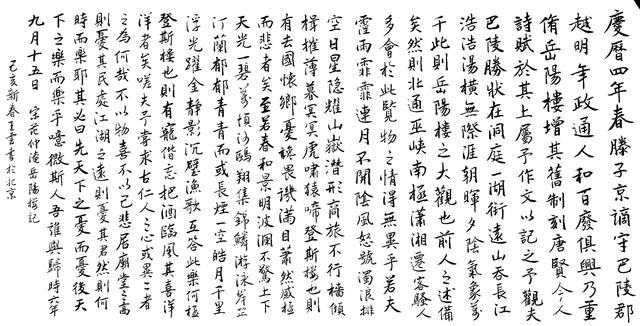 慶曆四年春滕子京謫守巴陵郡
越明年政通人和百廢俱興乃重
脩岳陽樓增其舊制刻唐賢今人
詩賦於其上屬予作文以記之予觀夫
巴陵勝狀在洞庭一湖銜遠山吞長江
浩浩湯湯橫無際涯朝暉夕陰氣象萬
千此則岳陽樓之大觀也前人之述備
矣然則北通巫峽南極瀟湘遷客騷人
多會於此覽物之情得無異乎若夫
霪雨霏霏連月不開陰風怒號濁浪排
空日星隱耀山嶽潛形商旅不行檣傾
楫摧薄暮冥冥虎嘯猿啼登斯樓也則
有去國懷鄉憂讒畏譏滿目蕭然感極
而悲者矣至若春和景明波瀾不驚上下
天光一碧萬頃沙鷗翔集錦鱗游泳岸芷
汀蘭郁郁青青而或長煙一空皓月千里
浮光躍金靜影沉璧漁歌互答此樂何極
登斯樓也則有寵偕忘把酒臨風其喜洋
洋者矣嗟夫予嘗求古仁人之心或異二者
之為何哉不以物喜不以己悲居廟堂之高
則憂其民處江湖之遠則憂其君然則何
時而樂耶其必曰先天下之憂而憂後天
下之樂而樂乎噫微斯人吾誰與歸時六年
九月十五日 宋范仲淹岳陽樓記
己亥新春王書於北京